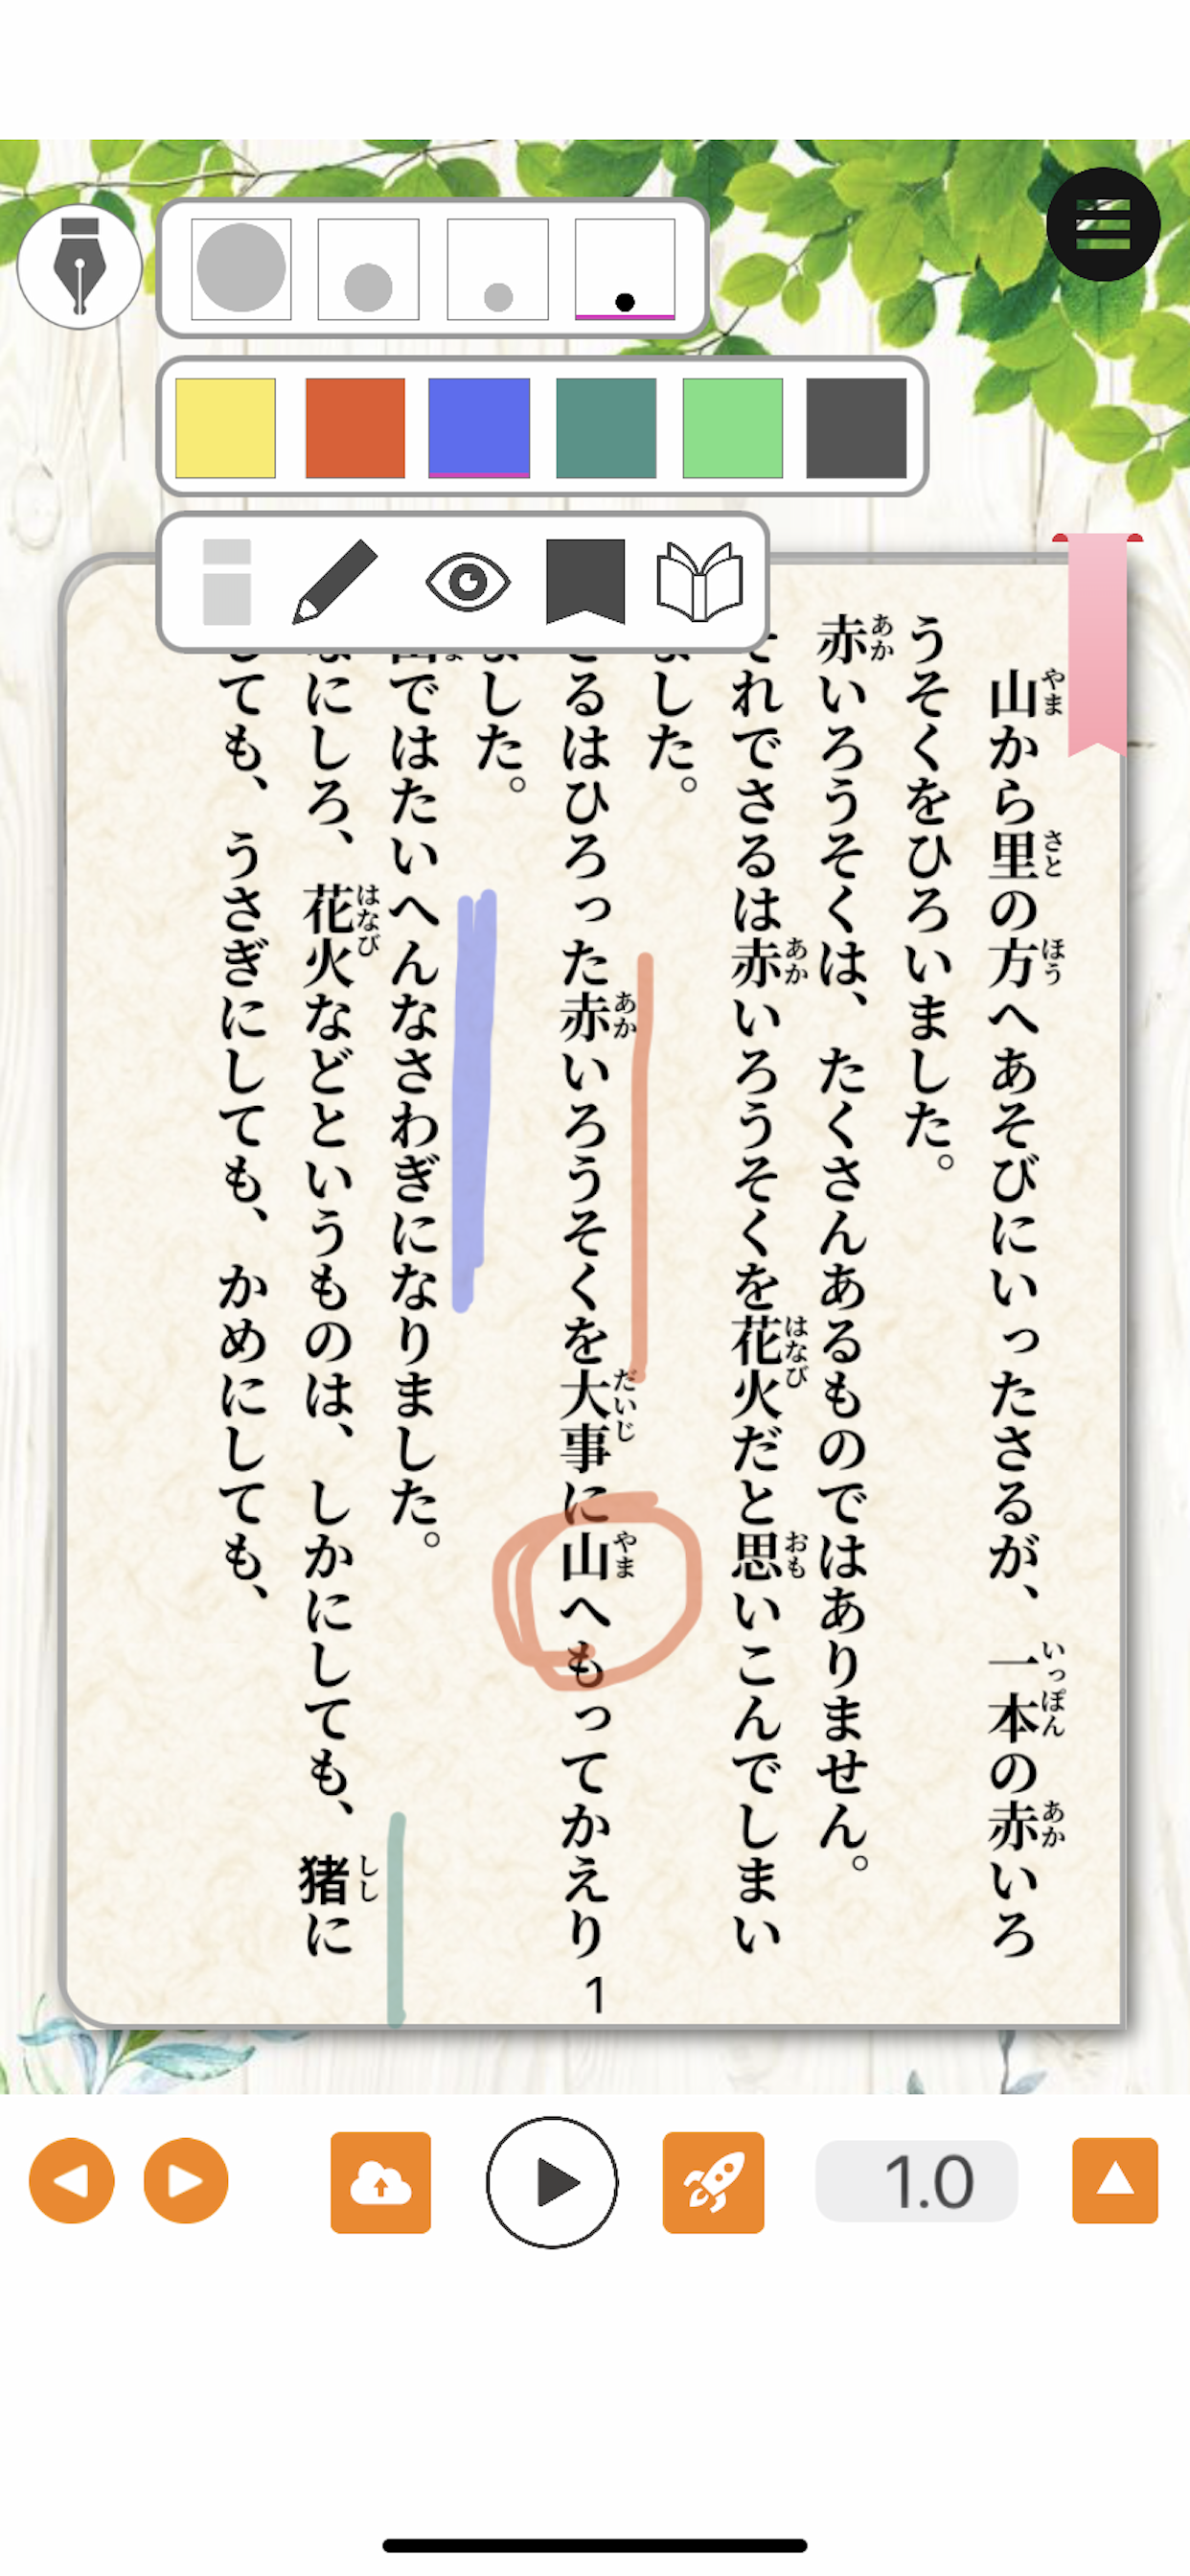 やま さと ほう いっぽん あか
山から里の方へあそびにいったさるが、一本の赤いろ
うそくをひろいました。
あか
赤いろうそくは、たくさんあるものではありません。
あか はなび おも
それでさるは赤いろうそくを花火だと思いこんでしまい
ました。
あか だいじ やま
さるはひろった赤いろうそくを大事に山へもってかえり
ました。
山ではたいへんなさわぎになりました。
はなび しし
なにしろ、花火などというものは、しかにしても、猪に
しても、うさぎにしても、かめにしても、
1
1.0